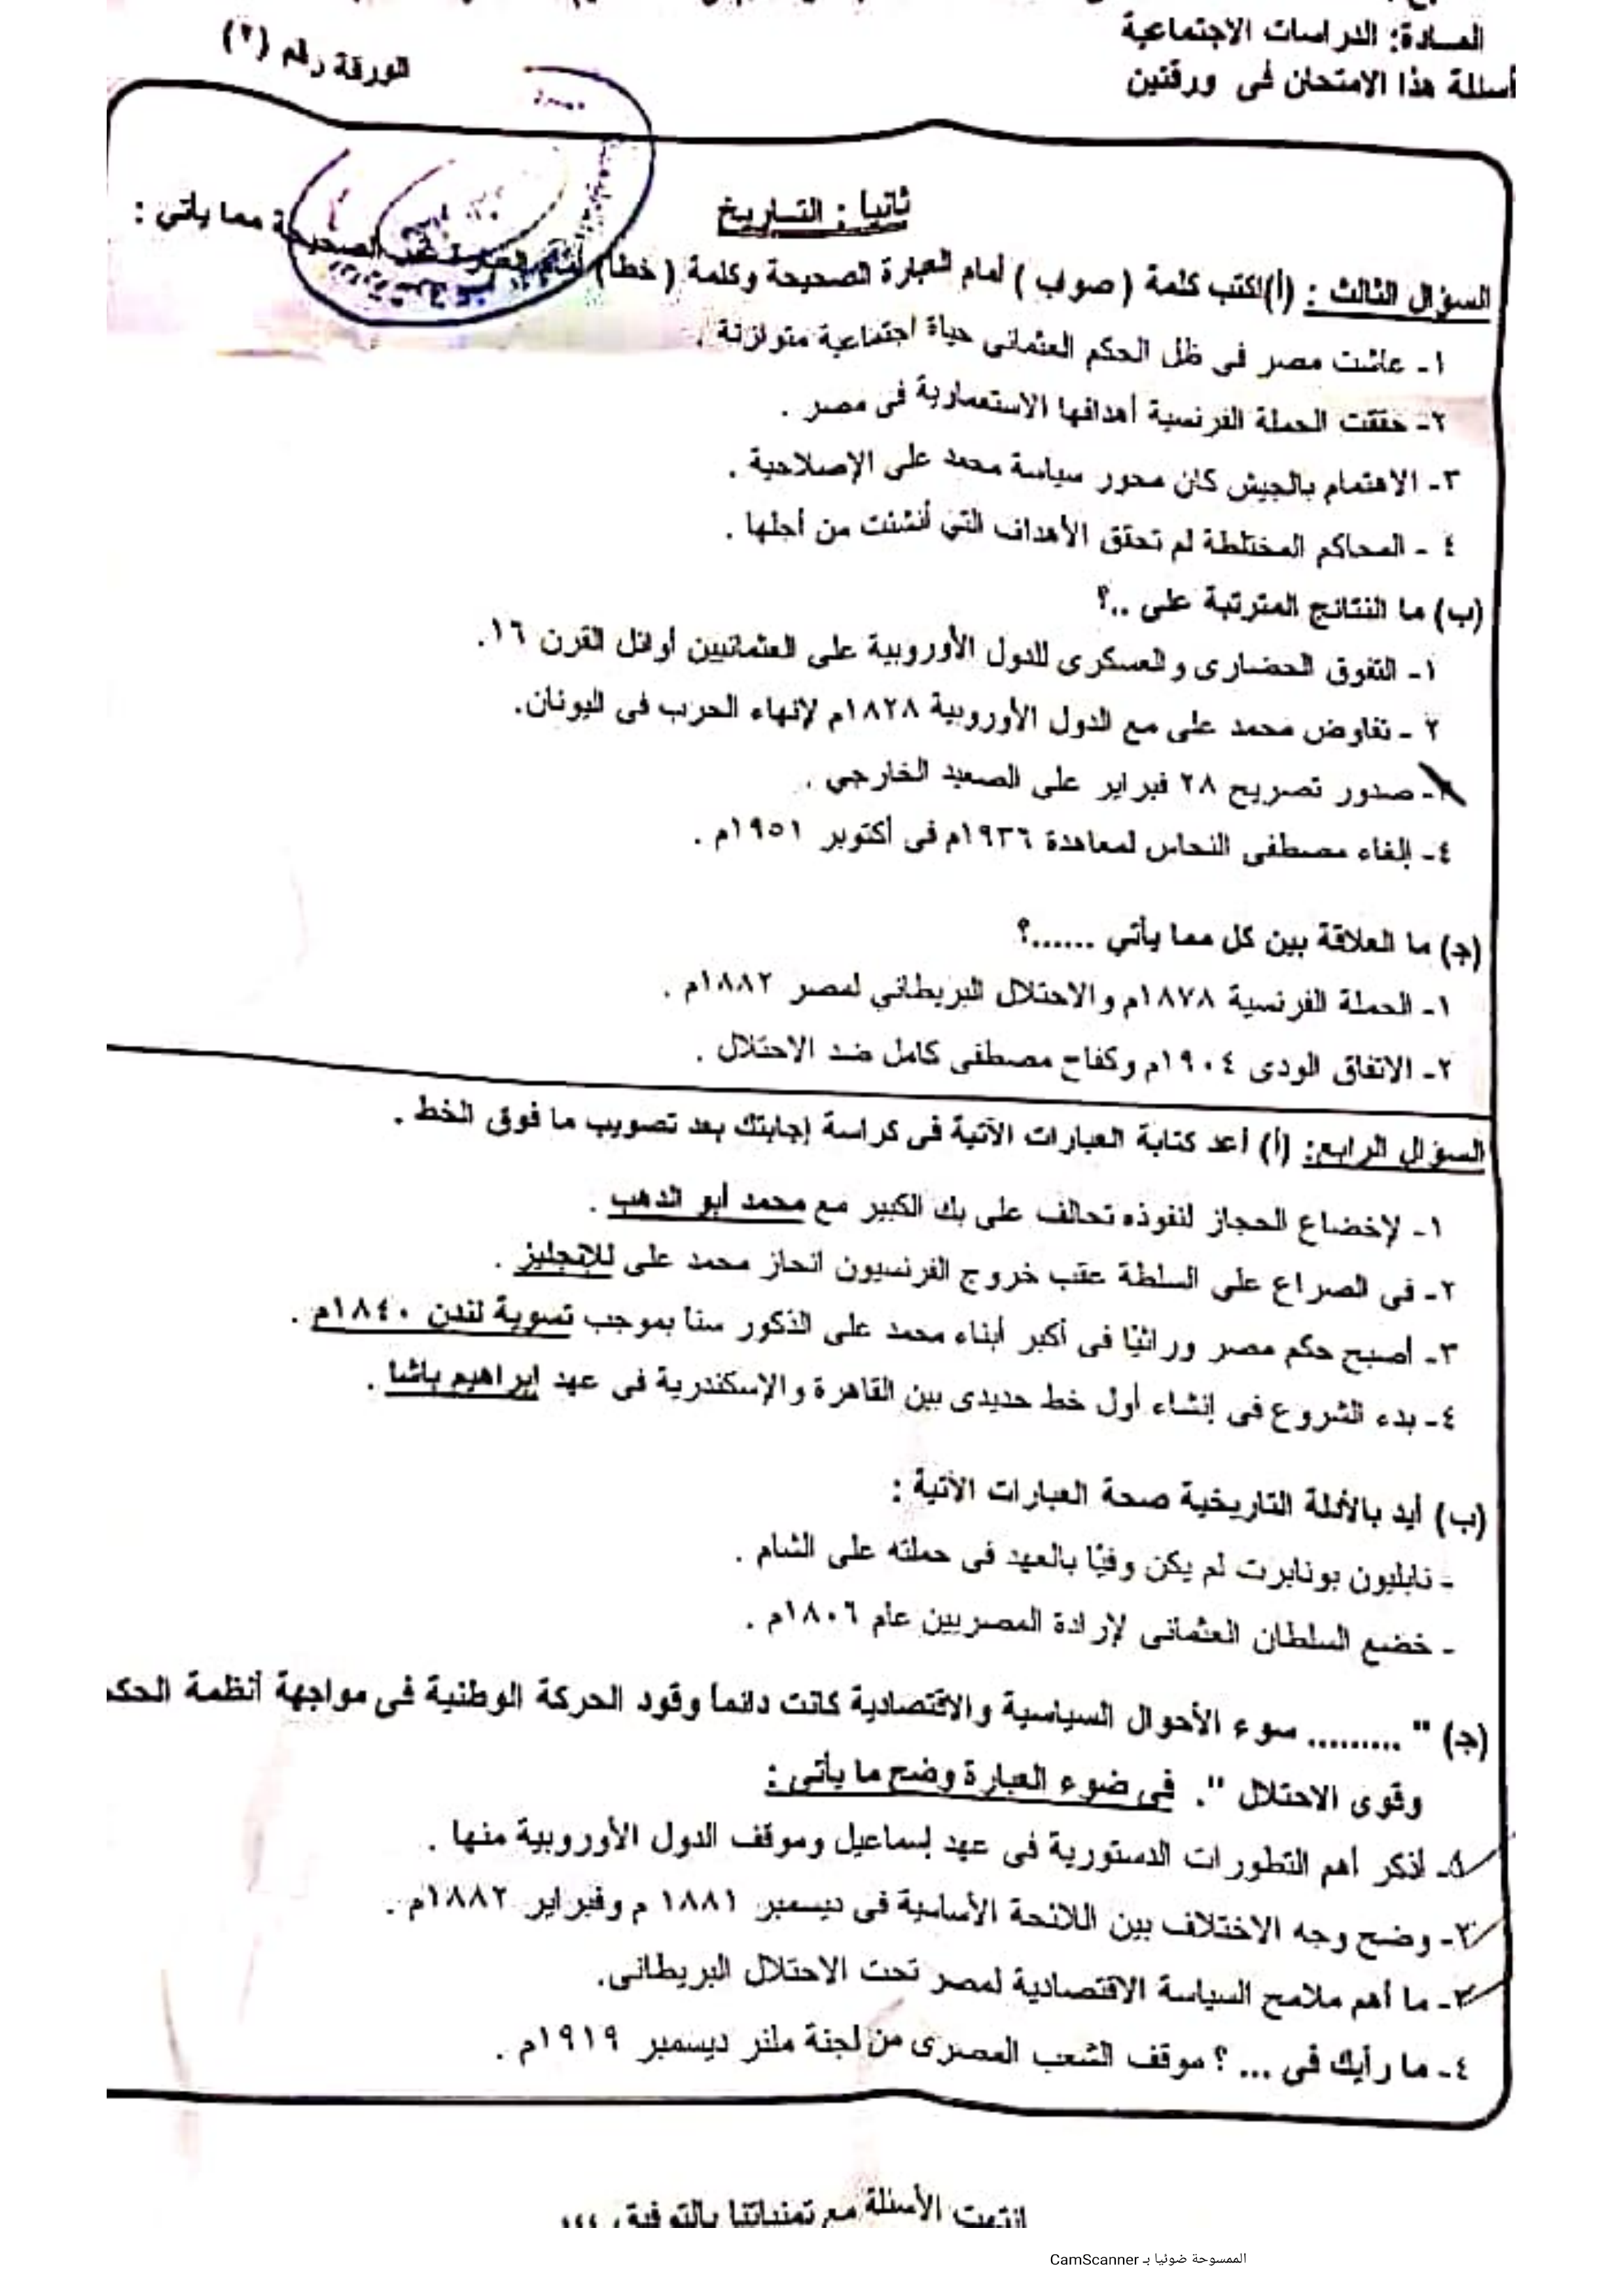 المادة: الدراسات الاجتماعية
أسئلة هذا الامتحان فى ورقتين
الورقة رقم (٢)
ثانيا : التاريخ
السؤال الثالث : (أ) اكتب كلمة ( صواب ) أمام العبارة الصحيحة وكلمة ( خطأ ) أمام العبارة غير الصحيحة مما يأتي :
١- عاشت مصر فى ظل الحكم العثمانى حياة اجتماعية متوازنة .
٢- حققت الحملة الفرنسية أهدافها الاستعمارية فى مصر .
٣- الاهتمام بالجيش كان محور سياسة محمد على الإصلاحية .
٤ - المحاكم المختلطة لم تحقق الأهداف التي أنشئت من أجلها .
(ب) ما النتائج المترتبة على ..؟
١- التفوق الحضارى والعسكرى للدول الأوروبية على العثمانيين أوائل القرن ١٦.
٢ - تفاوض محمد على مع الدول الأوروبية ١٨٢٨م لإنهاء الحرب فى اليونان.
٣- صدور تصريح ٢٨ فبراير على الصعيد الخارجي .
٤- إلغاء مصطفى النحاس لمعاهدة ١٩٣٦م فى أكتوبر ١٩٥١م .
(ج) ما العلاقة بين كل مما يأتي ......؟
١- الحملة الفرنسية ١٨٧٨م والاحتلال البريطاني لمصر ١٨٨٢م .
٢- الاتفاق الودى ١٩٠٤م وكفاح مصطفى كامل ضد الاحتلال .
السؤال الرابع: (أ) أعد كتابة العبارات الآتية فى كراسة إجابتك بعد تصويب ما فوق الخط .
١- لإخضاع الحجاز لنفوذه تحالف على بك الكبير مع محمد أبو الدهب .
٢- فى الصراع على السلطة عقب خروج الفرنسيون انحاز محمد على للإنجليز .
٣- أصبح حكم مصر وراثيًا فى أكبر أبناء محمد على الذكور سنا بموجب تسوية لندن ١٨٤٠م .
٤- بدء الشروع فى إنشاء أول خط حديدى بين القاهرة والإسكندرية فى عهد إبراهيم باشا .
(ب) أيد بالأدلة التاريخية صحة العبارات الآتية :
- نابليون بونابرت لم يكن وفيًا بالعهد فى حملته على الشام .
- خضع السلطان العثمانى لإرادة المصريين عام ١٨٠٦م .
(ج) " ......... سوء الأحوال السياسية والاقتصادية كانت دائما وقود الحركة الوطنية فى مواجهة أنظمة الحكم
وقوى الاحتلال ". فى ضوء العبارة وضح ما يأتى :
١- اذكر أهم التطورات الدستورية فى عهد إسماعيل وموقف الدول الأوروبية منها .
٢- وضح وجه الاختلاف بين اللائحة الأساسية فى ديسمبر ١٨٨١ م وفبراير ١٨٨٢م .
٣- ما أهم ملامح السياسة الاقتصادية لمصر تحت الاحتلال البريطانى.
٤- ما رأيك فى ... ؟ موقف الشعب المصرى من لجنة ملنر ديسمبر ١٩١٩م .
انتهت الأسئلة مع تمنياتنا بالتوفيق ،،،
الممسوحة ضوئيا بـ CamScanner